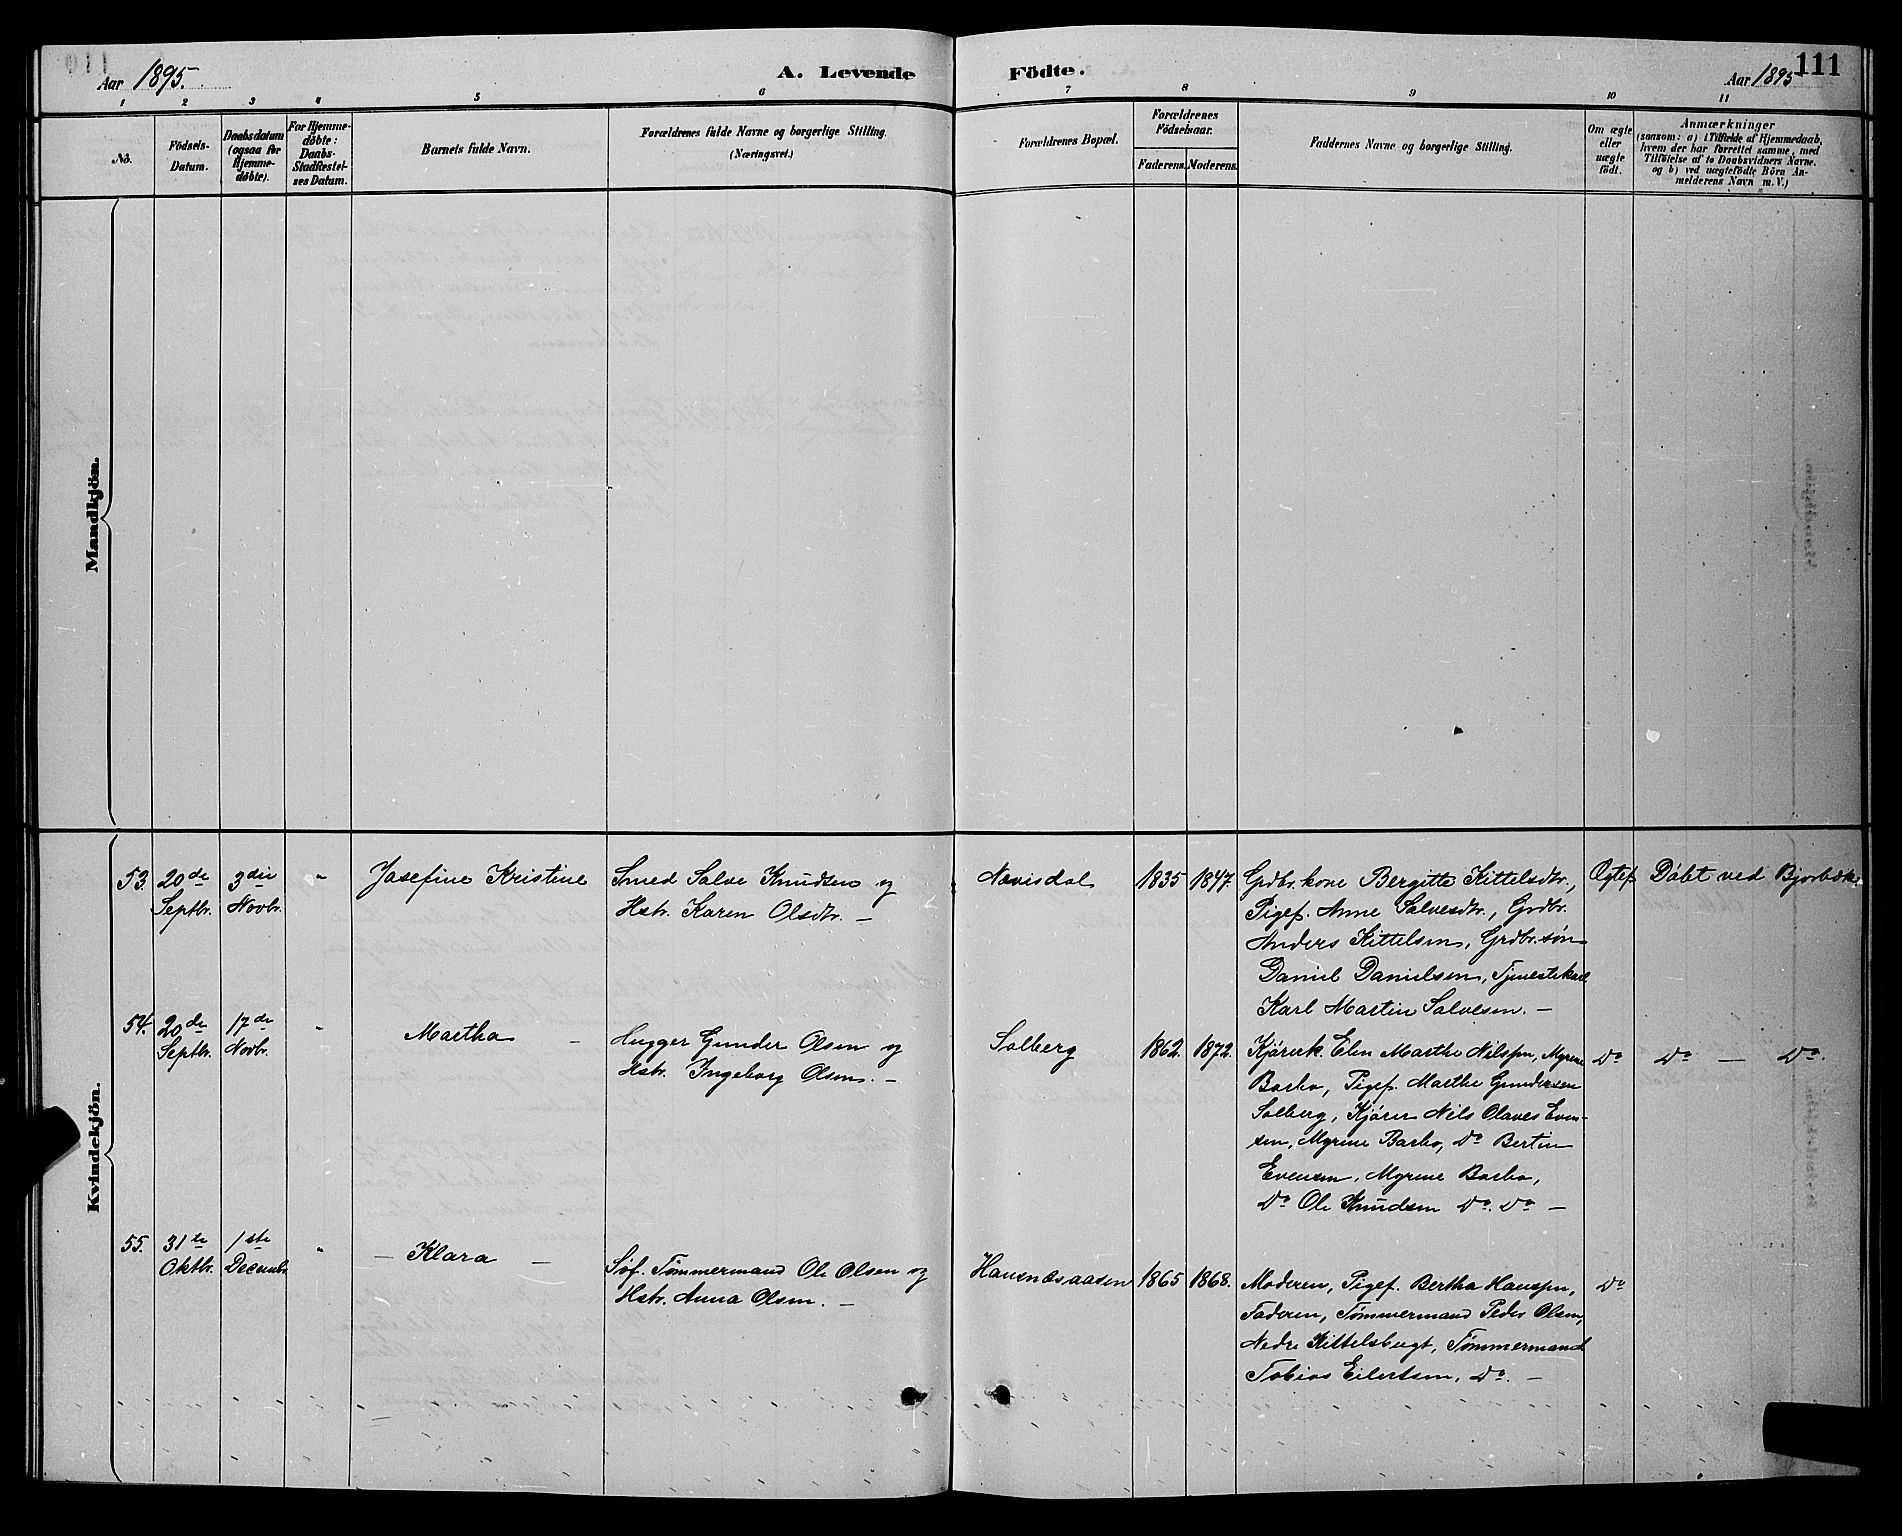 Aar 1895.
A. Levende Födte.
Aar 1895
111
1 2 3 4 5 6 7 8 9 10 11
No.
Födsels-
Datum.
Daabsdatum
(ogsaa for
Hjemme-
döbte).
For Hjemme-
döbte:
Daabs-
Stadfæstel-
ses Datum.
Barnets fulde Navn.
Forældrenes fulde Navne og borgerlige Stilling.
(Næringsvei.)
Forældrenes Bopæl.
Forældrenes
Födselsaar.
Faderens. Moderens.
Faddernes Navne og borgerlige Stilling.
Om ægte
eller
uægte
födt.
Anmærkninger
(saasom: a) i Tilfælde af Hjemmedaab,
hvem der har forrettet samme, med
Tilföielse af to Daabsvidners Navne.
og b) ved uægtefödte Börn An-
melderens Navn m. V.)
Mandkjön.
Kvindekjön.
53. 20de 3die " Josefine Kristine Smed Salve Knudsen og Nævisdal 1835 1847. Grdbr.kone Bergitte Kittelsdtr., Ægtef. Döbt ved Bjorbæk.
Septbr. Novbr. Hstr. Karen Olsdtr. — Pigef. Anne Salvesdtr., Grdbr.
Anders Kittelsen, Grdbr.søn
Daniel Danielsen, Tjenestekarl
Karl Martin Salvesen. —
54. 20de 17de " Martha — Hugger Gunder Olsen og Solberg 1862. 1872. Kjørerk. Elen Marthe Nilssen, Myrene Do Do — Do.
Septbr. Novbr. Hstr. Ingeborg Olsen. — Barbo, Pigef. Marthe Gundersen
Solberg, Kjører Nils Olaves Even-
sen, Myrene Barbo, Do Bertin
Evensen, Myrene Barbo,
Do Ole Knudsen Do. Do —
55. 31te 1ste " — Klara — Søf. Tømmermand Ole Olsen og Hansnæsaasen 1865 1868. Moderen, Pigef. Bertha Hanssen, Do
Oktbr. Decembr. Hstr. Anna Olsen. — Faderen, Tømmermand Peder Olsen,
Nedre Kittelsbugt, Tømmermand
Tobias Eilertsen, Do. —